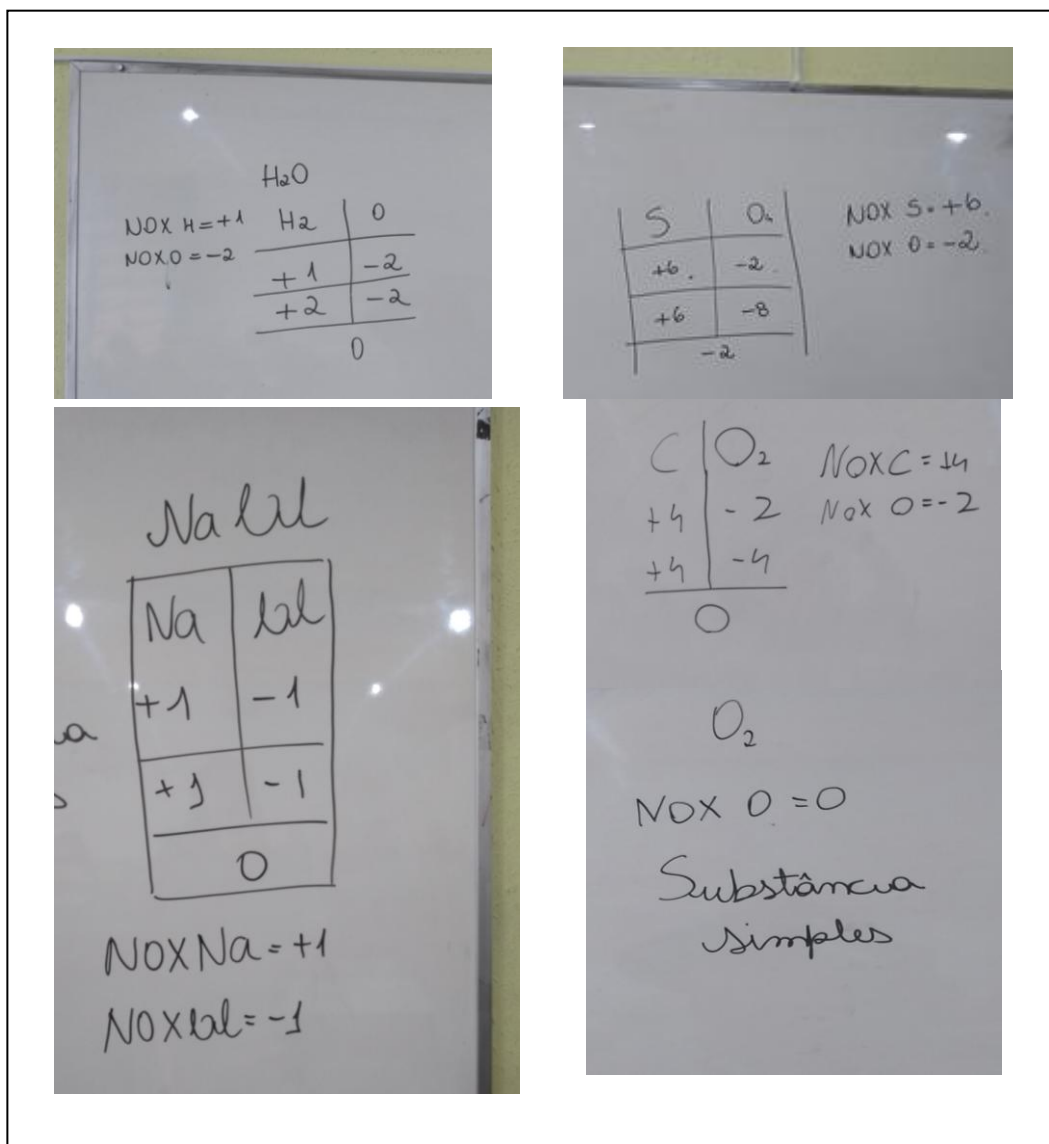 H₂O
NOX H = +1
NOX O = -2
H₂ | O
+1 | -2
+2 | -2
0
S | O₄
+6. | -2.
+6 | -8
-2
NOX S = +6.
NOX O = -2.
Na Cl
Na | Cl
+1 | -1
+1 | -1
0
NOX Na = +1
NOX Cl = -1
C | O₂
+4 | -2
+4 | -4
0
NOX C = +4
NOX O = -2
O₂
NOX O = 0
Substância
simples